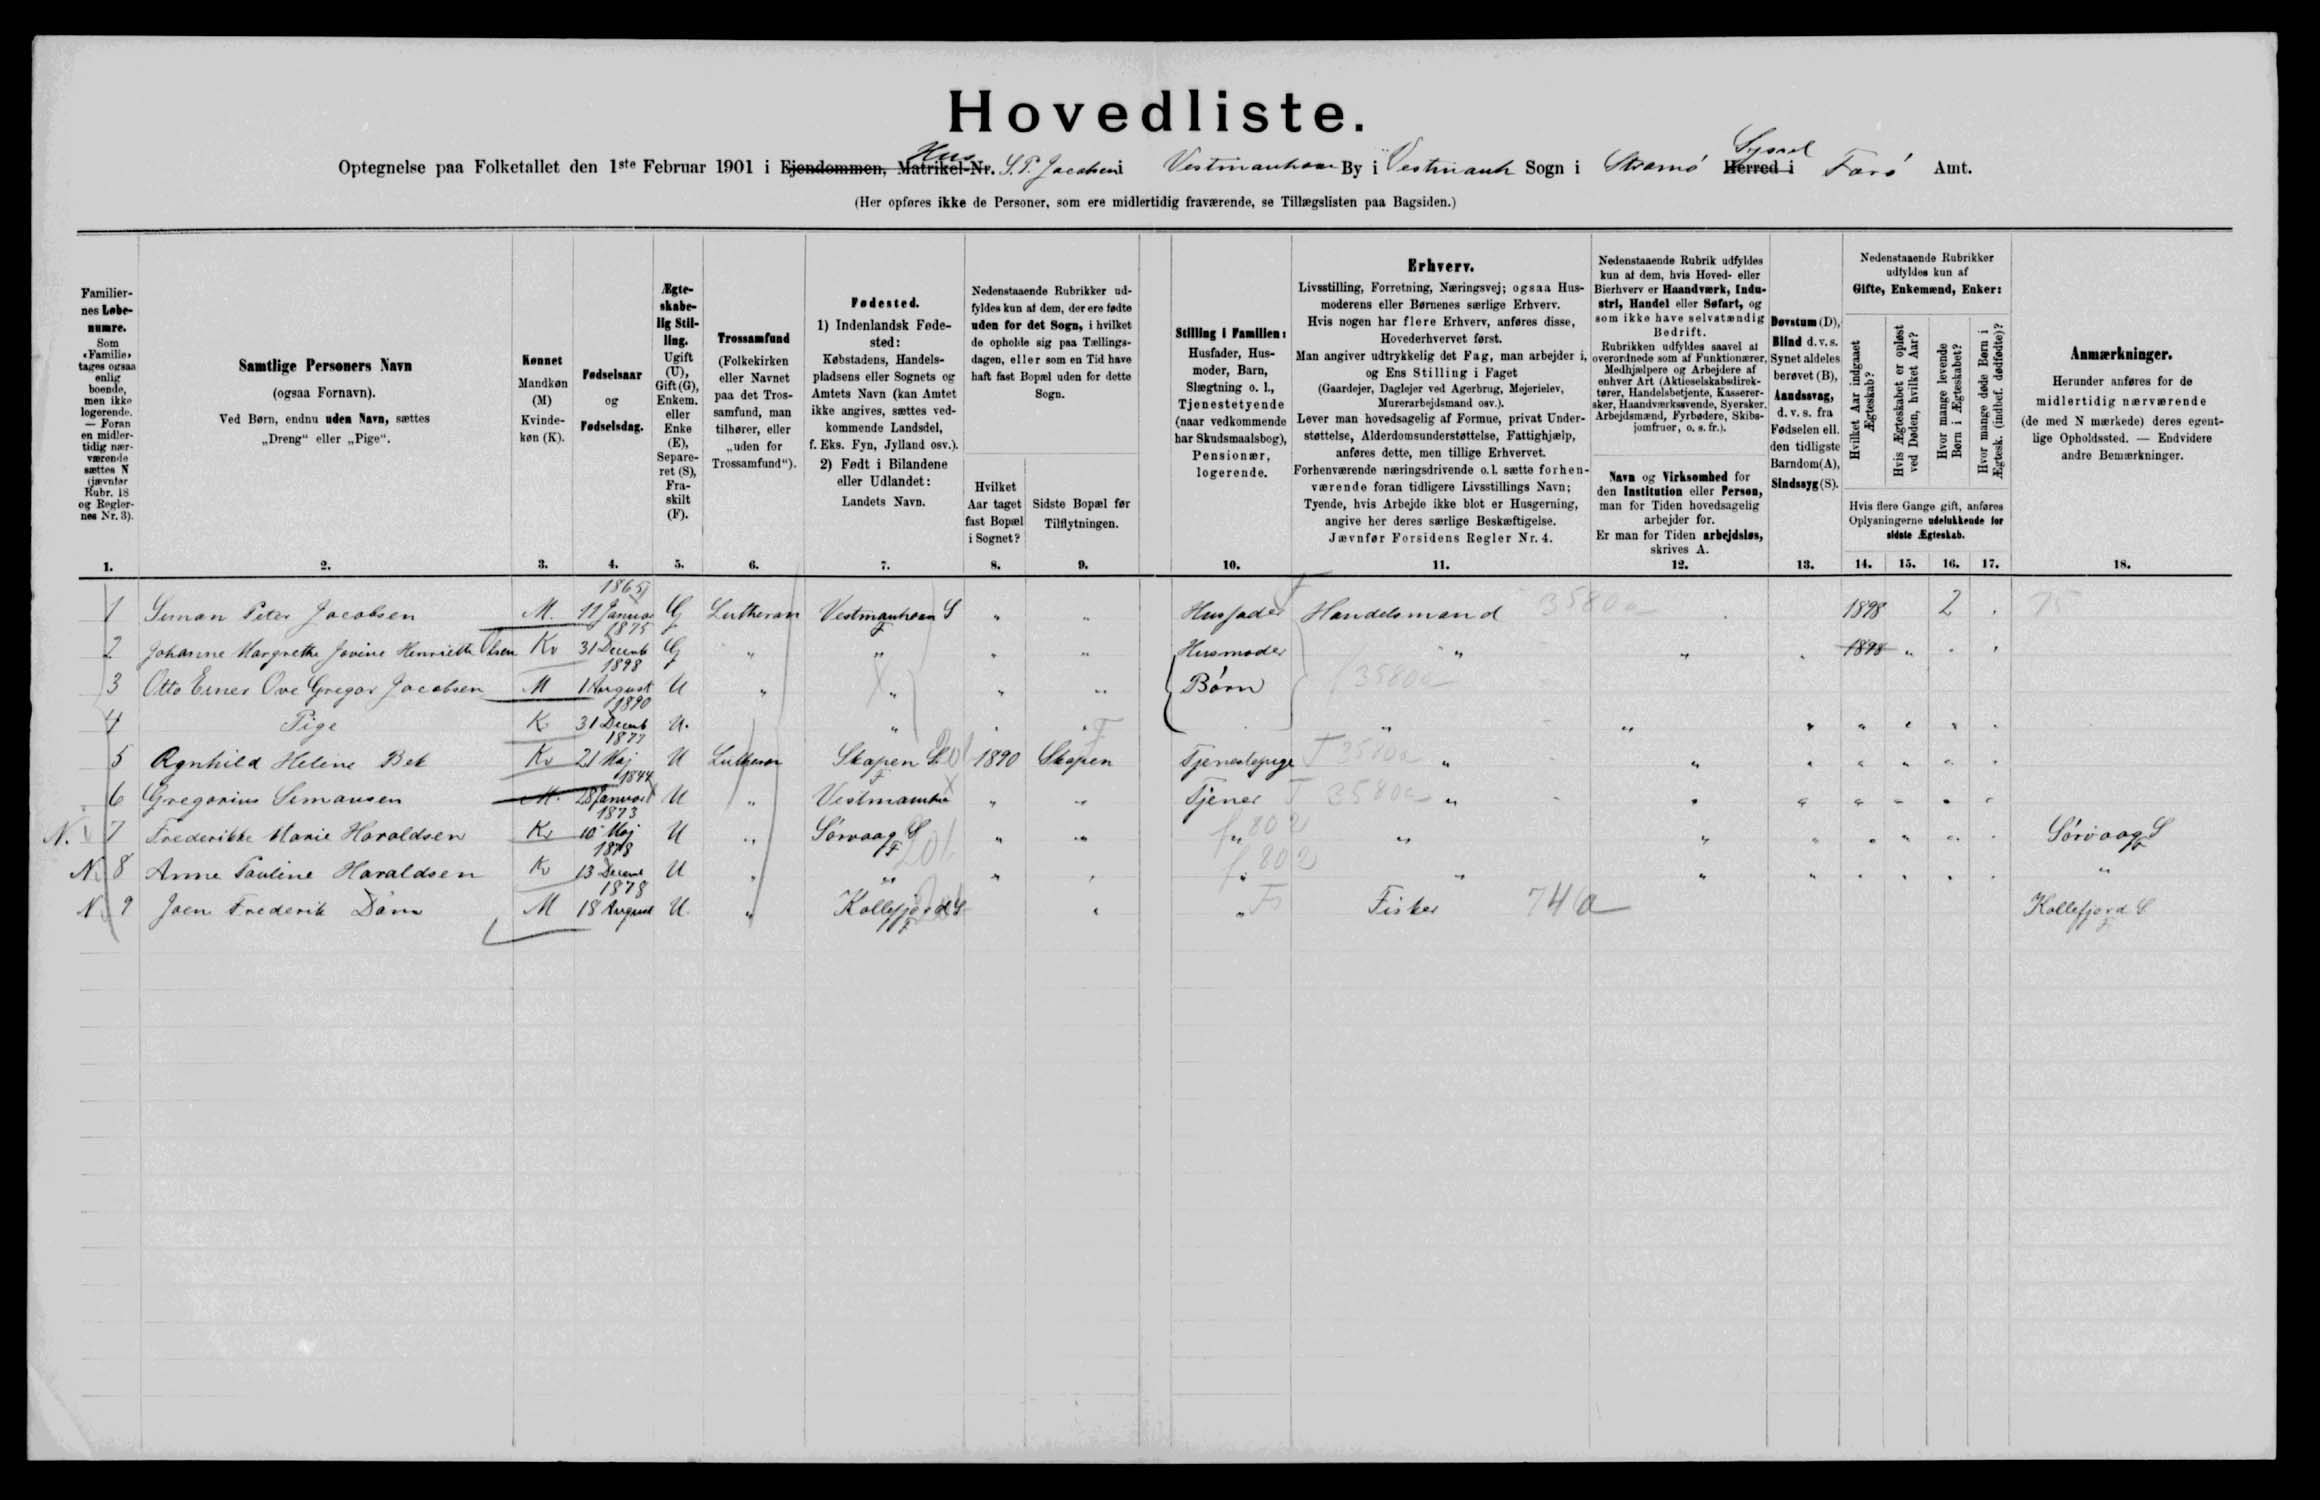 Hovedliste.
Optegnelse paa Folketallet den 1ste Februar 1901 i Ejendommen, Matrikel-Nr. Hus S. P. Jacobsen i Vestmanhavn By i Vestmanh Sogn i Strømø Herred i Syssel Færø Amt.
(Her opføres ikke de Personer, som ere midlertidig fraværende, se Tillægslisten paa Bagsiden.)
Familiernes Løbenumre.
Som «Familie» tages ogsaa enlig boende, men ikke logerende. — Foran en midlertidig nærværende sættes N (jævnfør Rubr. 18 og Reglernes Nr. 3).
Samtlige Personers Navn
(ogsaa Fornavn).
Ved Børn, endnu uden Navn, sættes
„Dreng“ eller „Pige“.
Kønnet
Mandkøn (M)
Kvindekøn (K).
Fødselsaar
og
Fødselsdag.
Ægteskabelig Stilling.
Ugift (U), Gift (G), Enkem. eller Enke (E), Separeret (S), Fraskilt (F).
Trossamfund
(Folkekirken eller Navnet paa det Trossamfund, man tilhører, eller „uden for Trossamfund“).
Fødested.
1) Indenlandsk Fødested:
Købstadens, Handelspladsens eller Sognets og Amtets Navn (kan Amtet ikke angives, sættes vedkommende Landsdel, f. Eks. Fyn, Jylland osv.).
2) Født i Bilandene eller Udlandet:
Landets Navn.
Nedenstaaende Rubrikker udfyldes kun af dem, der ere fødte uden for det Sogn, i hvilket de opholde sig paa Tællingsdagen, eller som en Tid have haft fast Bopæl uden for dette Sogn.
Hvilket Aar taget fast Bopæl i Sognet?
Sidste Bopæl før Tilflytningen.
Stilling i Familien:
Husfader, Husmoder, Barn, Slægtning o. l., Tjenestetyende (naar vedkommende har Skudsmaalsbog), Pensionær, logerende.
Erhverv.
Livsstilling, Forretning, Næringsvej; ogsaa Husmoderens eller Børnenes særlige Erhverv.
Hvis nogen har flere Erhverv, anføres disse, Hovederhvervet først.
Man angiver udtrykkelig det Fag, man arbejder i, og Ens Stilling i Faget
(Gaardejer, Daglejer ved Agerbrug, Mejerielev, Murerarbejdsmand osv.).
Lever man hovedsagelig af Formue, privat Understøttelse, Alderdomsunderstøttelse, Fattighjælp, anføres dette, men tillige Erhvervet.
Forhenværende næringsdrivende o. l. sætte forhenværende foran tidligere Livsstillings Navn;
Tyende, hvis Arbejde ikke blot er Husgerning, angive her deres særlige Beskæftigelse.
Jævnfør Forsidens Regler Nr. 4.
Nedenstaaende Rubrik udfyldes kun af dem, hvis Hoved- eller Bierhverv er Haandværk, Industri, Handel eller Søfart, og som ikke have selvstændig Bedrift.
Rubrikken udfyldes saavel af overordnede som af Funktionærer, Medhjælpere og Arbejdere af enhver Art (Aktieselskabsdirektører, Handelsbetjente, Kasserersker, Haandværkssvende, Syersker, Arbejdsmænd, Fyrbødere, Skibsjomfruer, o. s. fr.).
Navn og Virksomhed for den Institution eller Person, man for Tiden hovedsagelig arbejder for.
Er man for Tiden arbejdsløs, skrives A.
Døvstum (D), Blind d. v. s. Synet aldeles berøvet (B), Aandssvag, d. v. s. fra Fødselen ell. den tidligste Barndom (A), Sindssyg (S).
Nedenstaaende Rubrikker udfyldes kun af Gifte, Enkemænd, Enker:
Hvilket Aar indgaaet Ægteskab?
Hvis Ægteskabet er opløst ved Døden, hvilket Aar?
Hvor mange levende Børn i Ægteskabet?
Hvor mange døde Børn i Ægtesk. (indbef. dødfødte)?
Hvis flere Gange gift, anføres Oplysningerne udelukkende for sidste Ægteskab.
Anmærkninger.
Herunder anføres for de midlertidig nærværende (de med N mærkede) deres egentlige Opholdssted. — Endvidere andre Bemærkninger.
1. 2. 3. 4. 5. 6. 7. 8. 9. 10. 11. 12. 13. 14. 15. 16. 17. 18.
1 Siman Peter Jacobsen M. 1865 11 Januar G Lutheran Vestmanhavn S F " " Husfader Handelsmand 3580a 1898 2 . 75
2 Johanne Margrethe Jovine Henriette Olsen Kv 1875 31 Decemb G " " " " Husmoder " " . 1898 " . .
3 Otto Ernes Ove Gregor Jacobsen M 1898 1 August U " " " " Børn
4 Pige K 1890 31 Decemb U. " . " " " " " " "
5 Agnhild Helene Bek Kv 1877 21 Maj U Lutheran Skapen S F 1890 Skapen Tjenestepige " " " " " " "
6 Gregorius Simansen M. 1844 28 Januar U " Vestmanhn " " Tjener " " " " " " "
N. 7 Frederikke Marie Haraldsen Kv 1873 10 Maj U " Sørvaag S F " " " " " " " " " Sørvaag S F
N. 8 Anne Pauline Haraldsen Kv 1878 13 Decemb U " " " " " " " " " " " "
N. 9 Joen Frederik Dam M 1878 18 August U. " Kollefjord S F " " Fisker 74a Kollefjord S F